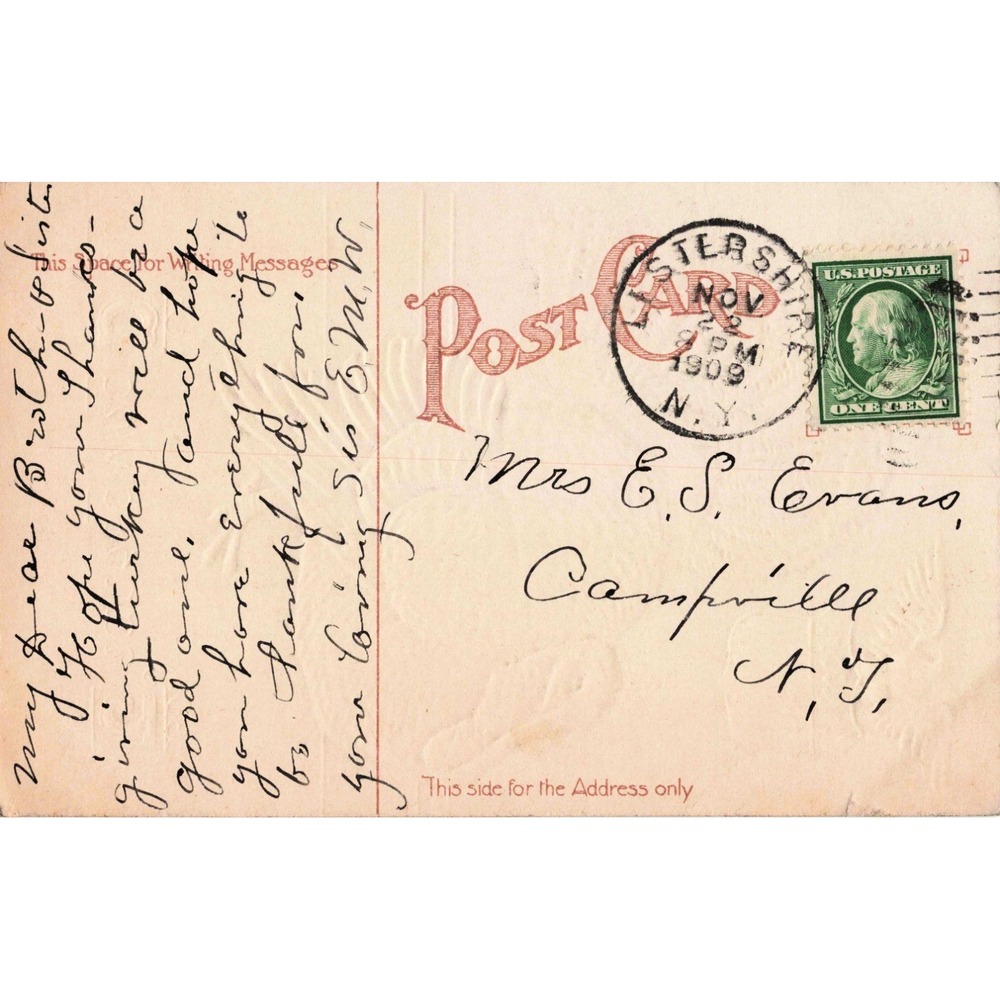 This Space for Writing Messages
POST CARD
LESTERSHIRE
NOV
22
8 PM
1909
N.Y.
U.S. POSTAGE
ONE CENT
My Dear Brother & Sister
Hope your Thanks-
giving turkey will be a
good one, and hope
you have everything to
be thankful for,
your loving sis E.M.W.
Mrs E. S. Evans,
Campville
N.Y.
This side for the Address only